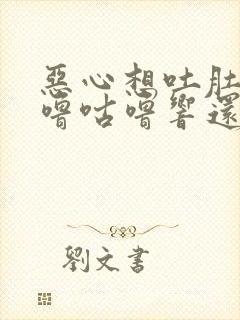 惡心想吐肚
嚕咕嚕響還
劉文書